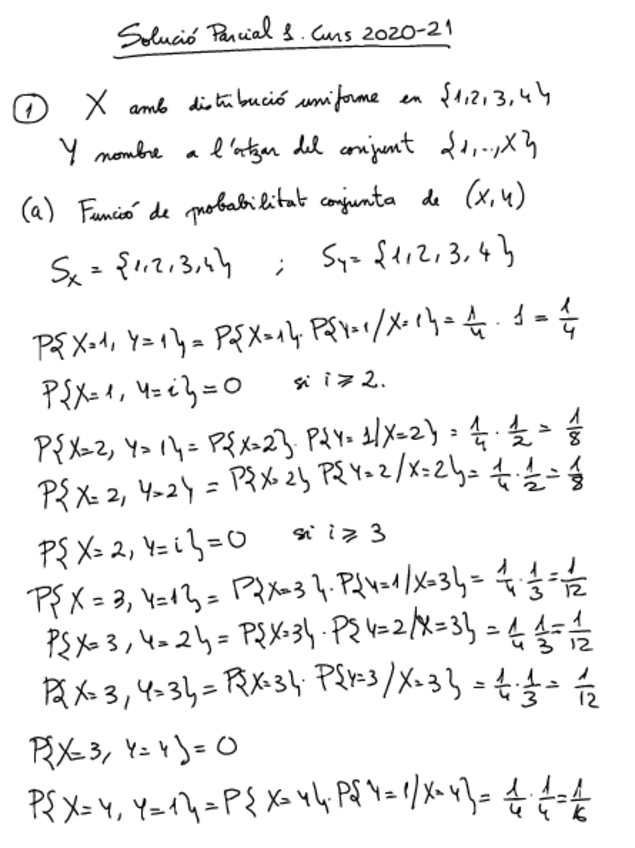 Solució Parcial 1. Curs 2020-21
① X amb distribució uniforme en {1,2,3,4}
Y nombre a l'atzar del conjunt {1,..,X}
(a) Funció de probabilitat conjunta de (X,Y)
Sx = {1,2,3,4} ; Sy = {1,2,3,4}
P{X=1, Y=1} = P{X=1}. P{Y=1/X=1} = 1/4 . 1 = 1/4
P{X=1, Y=i} = 0 si i ≥ 2.
P{X=2, Y=1} = P{X=2}. P{Y=1/X=2} = 1/4 . 1/2 = 1/8
P{X=2, Y=2} = P{X=2} P{Y=2/X=2} = 1/4 . 1/2 = 1/8
P{X=2, Y=i} = 0 si i ≥ 3
P{X=3, Y=1} = P{X=3}. P{Y=1/X=3} = 1/4 . 1/3 = 1/12
P{X=3, Y=2} = P{X=3}. P{Y=2/X=3} = 1/4 1/3 = 1/12
P{X=3, Y=3} = P{X=3}. P{Y=3/X=3} = 1/4 . 1/3 = 1/12
P{X=3, Y=4} = 0
P{X=4, Y=1} = P{X=4}. P{Y=1/X=4} = 1/4 . 1/4 = 1/16